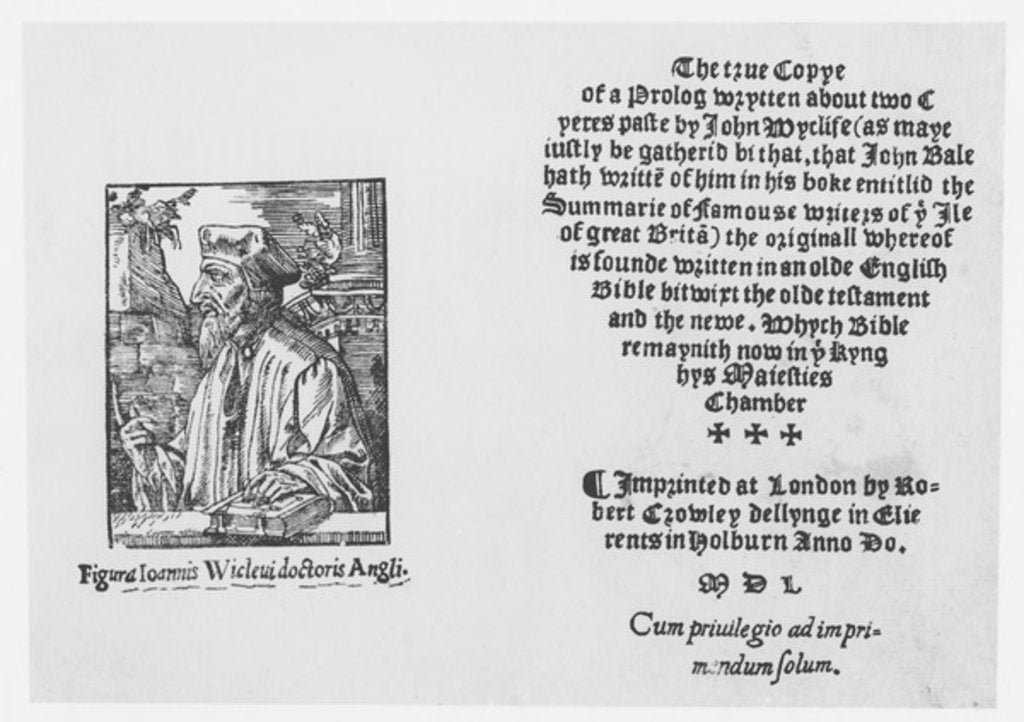 Figura Ioannis Wicleui doctoris Angli.
The true Copye
of a Prolog wrytten about two C
yeres paste by John Wyclife (as maye
iustly be gatherid bi that, that John Bale
hath writtẽ of him in his boke entitlid the
Summarie of famouse writers of yͤ Ile
of great Britã) the originall whereof
is founde written in an olde English
Bible bitwixt the olde testament
and the newe. Whych Bible
remaynith now in yͤ Kyng
hys Maiesties
Chamber
✠ ✠ ✠
¶ Imprinted at London by Ro=
bert Crowley dellynge in Elie
rents in Holburn Anno Do.
M D L
Cum priuilegio ad impri=
mendum solum.